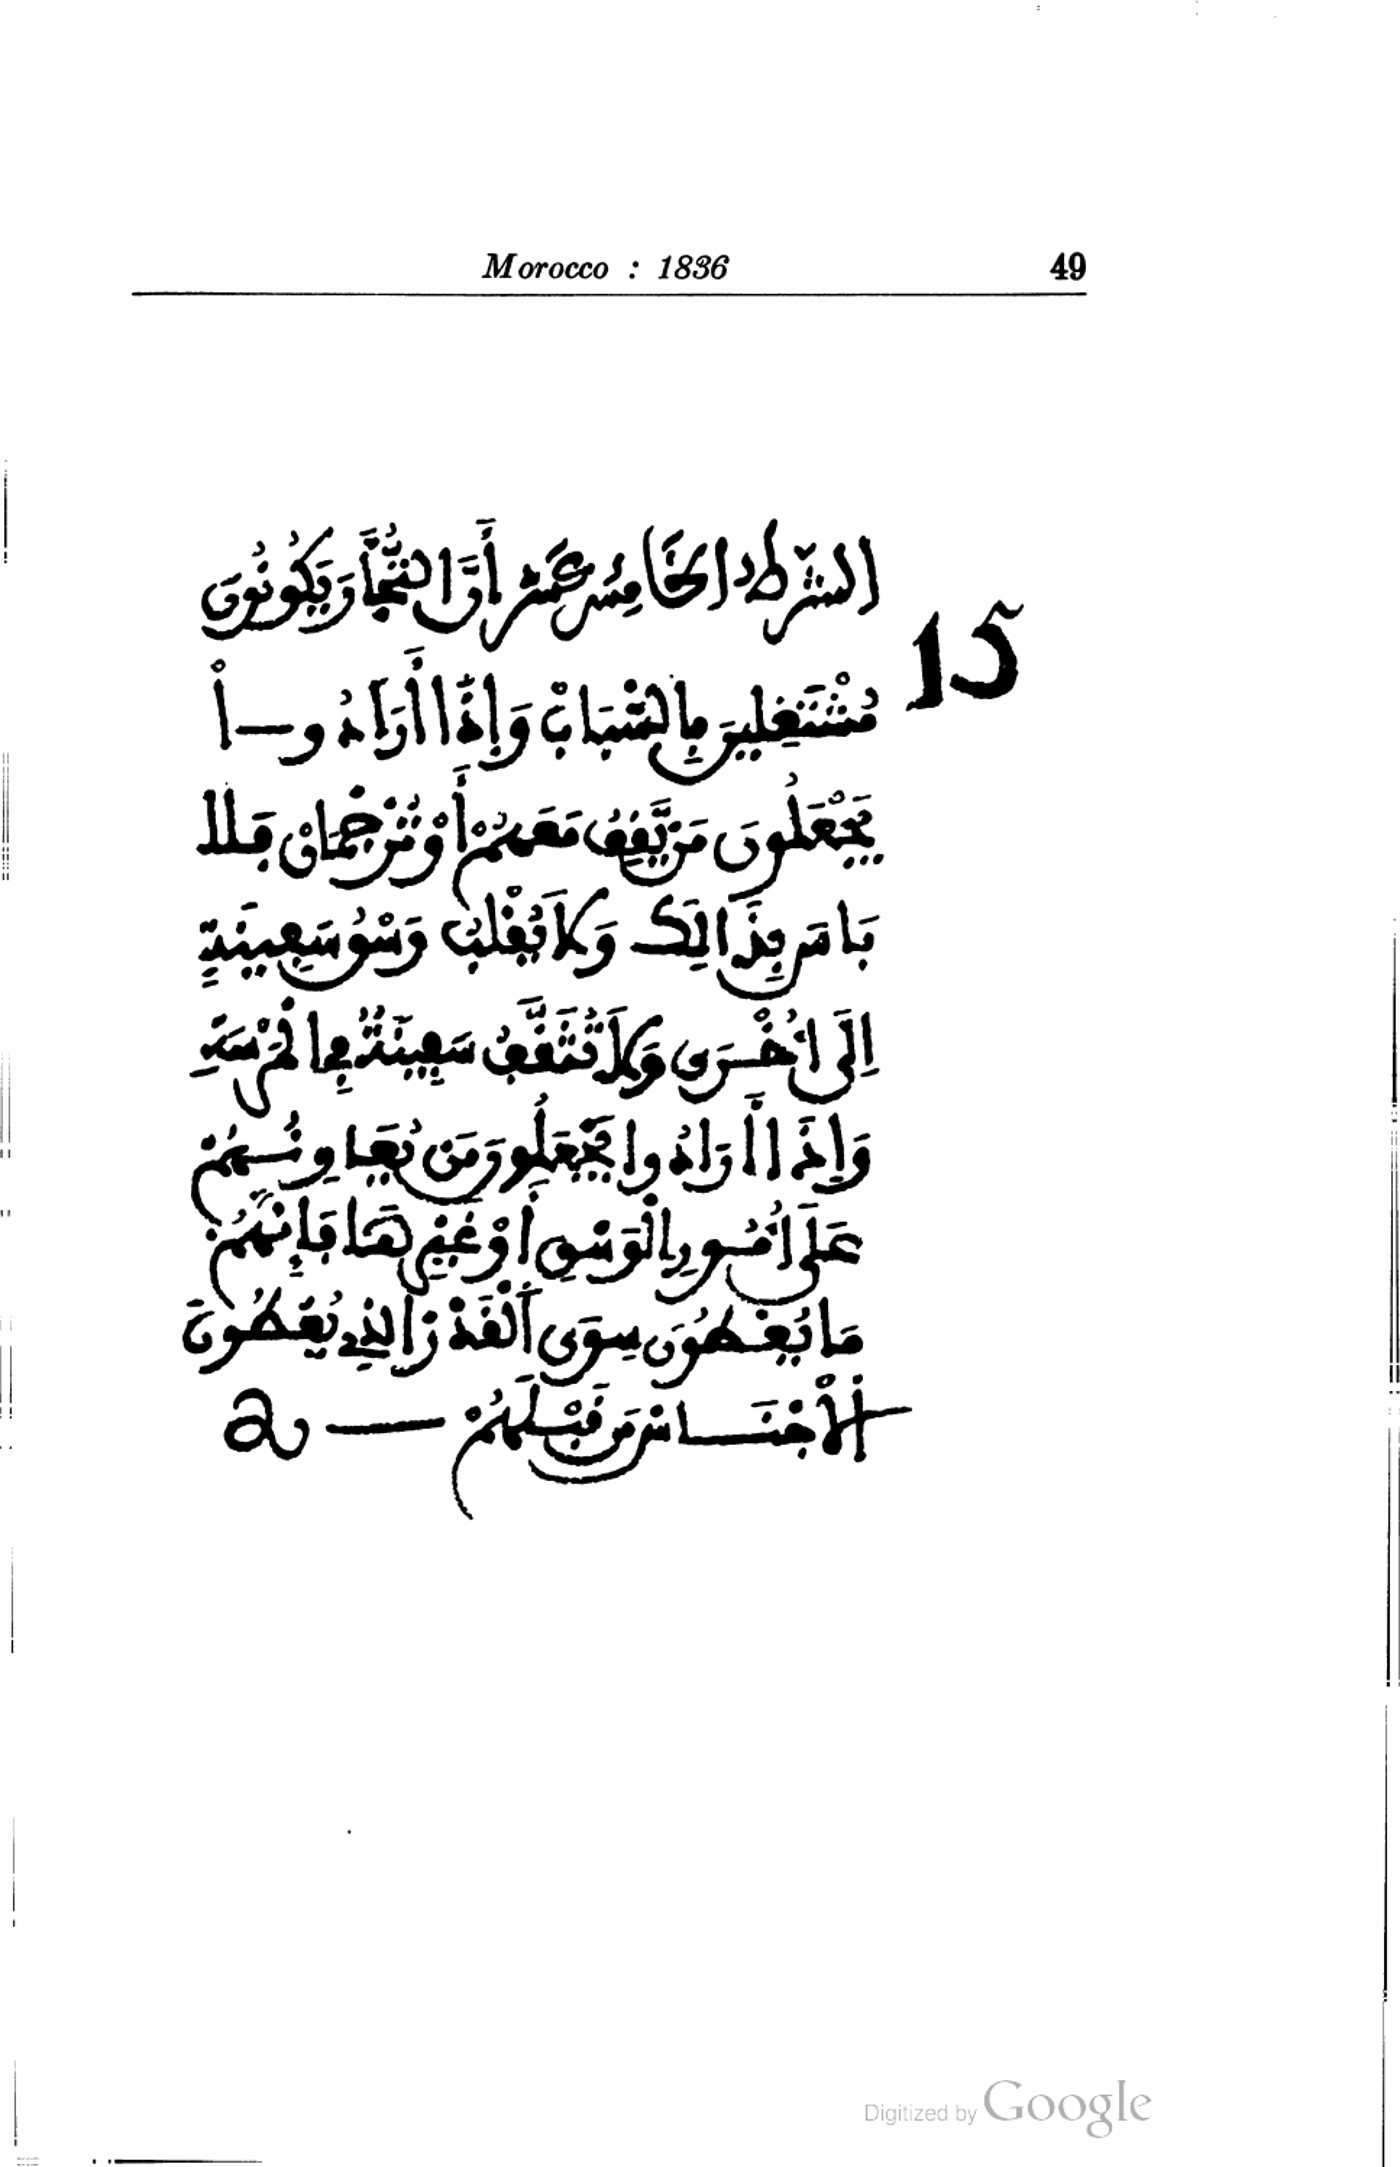 Morocco : 1836 49
الشرط الخامس عشر أن التجار يكونون
15
مشتغلين بالشباب وإذا أرادوا
يجعلون من يقف معهم أو ترجمان فلا
باس بذالك ولا يقلب وسق سفينة
إلى أخرى ولا تثقف سفينة في المرسة
وإذا أرادوا يجعلون من يعاونهم
على أمور الوسق أو غيرها فإنهم
ما يعطون سوى القدر الذي يعطون
الأجناس من قبلهم
Digitized by Google